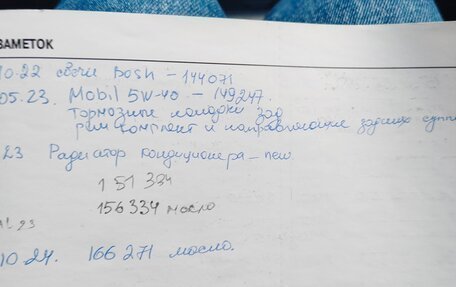 ЗАМЕТОК
10.22 свечи Bosh - 144071
05.23. Mobil 5W-40 - 149247.
Тормозные колодки зад
рем комплект и направляющие задних суппо
23 Радиатор кондиционера - new.
151 334
156334 масло
23
10.24. 166 271 масло.